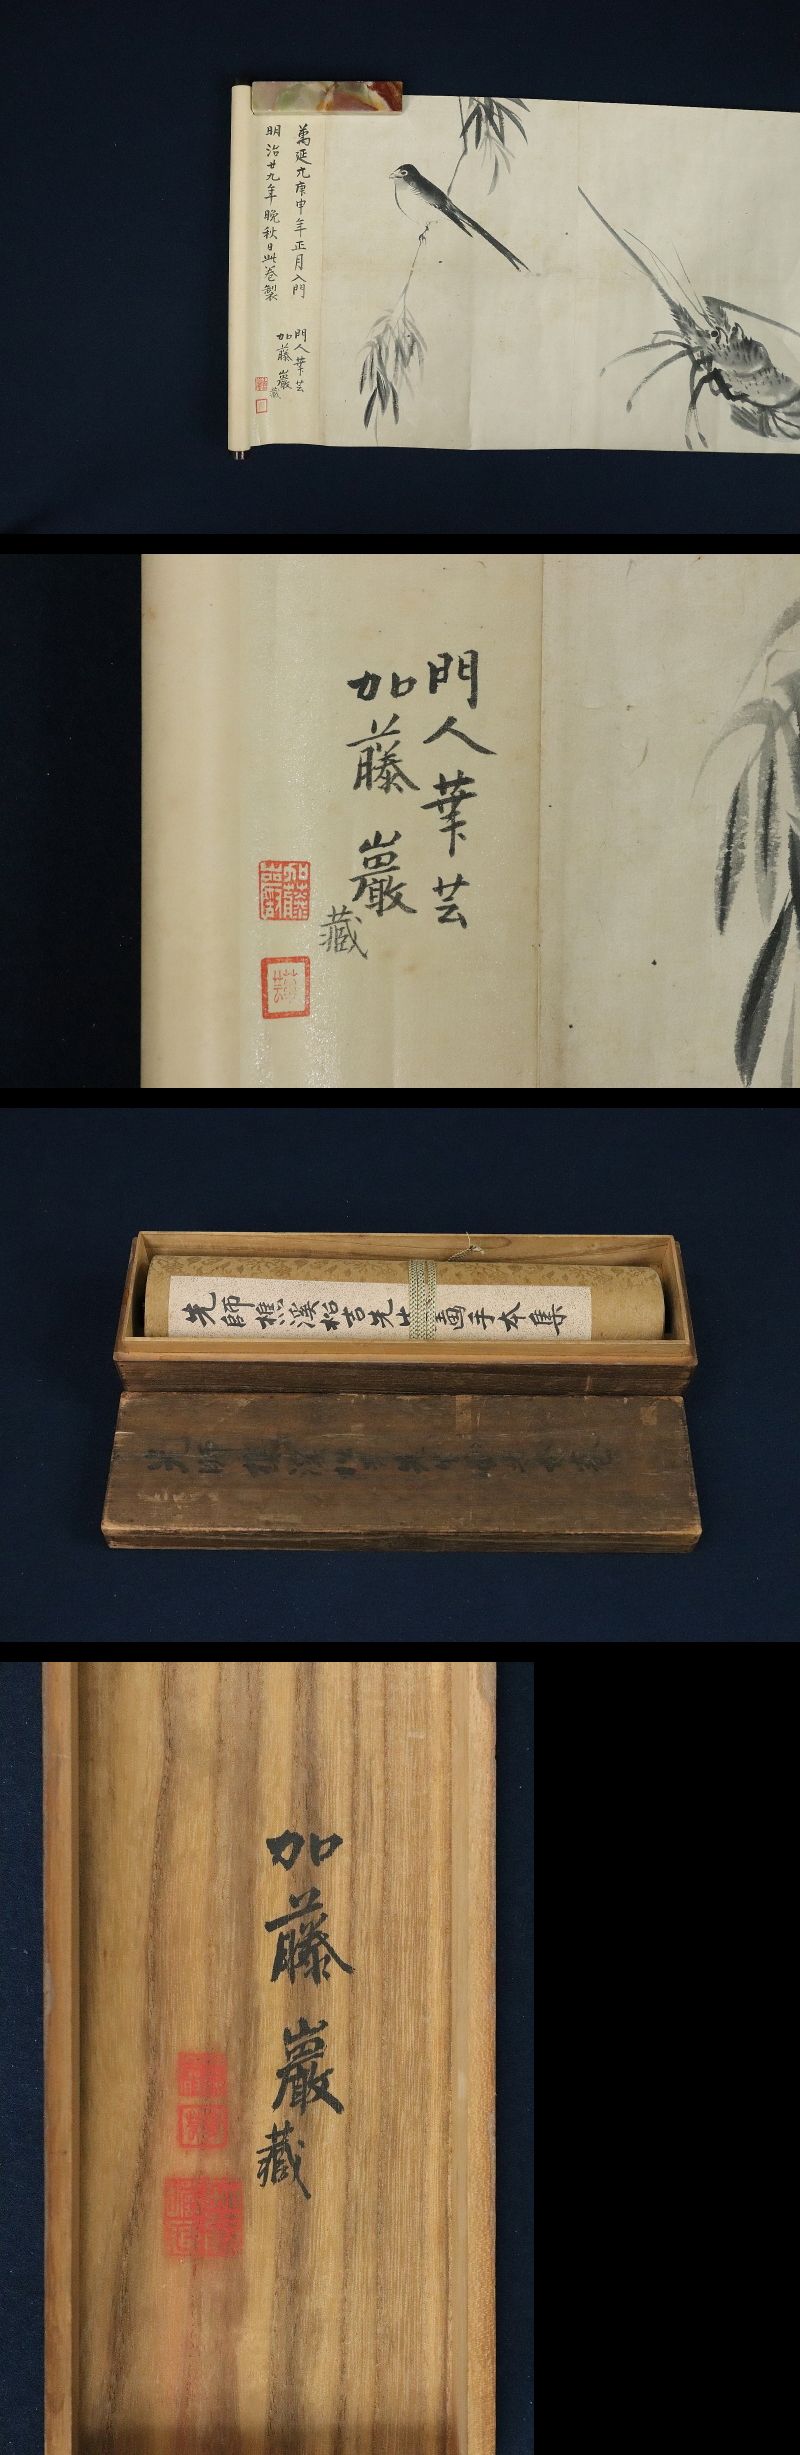 萬延元庚申年正月入門
明治廿九年晩秋日此巻製
門人華芸
加藤巖
藏
門人華芸
加藤巖
藏
加藤巖
先師樵溪松吉先生画手本集
加藤巖
藏